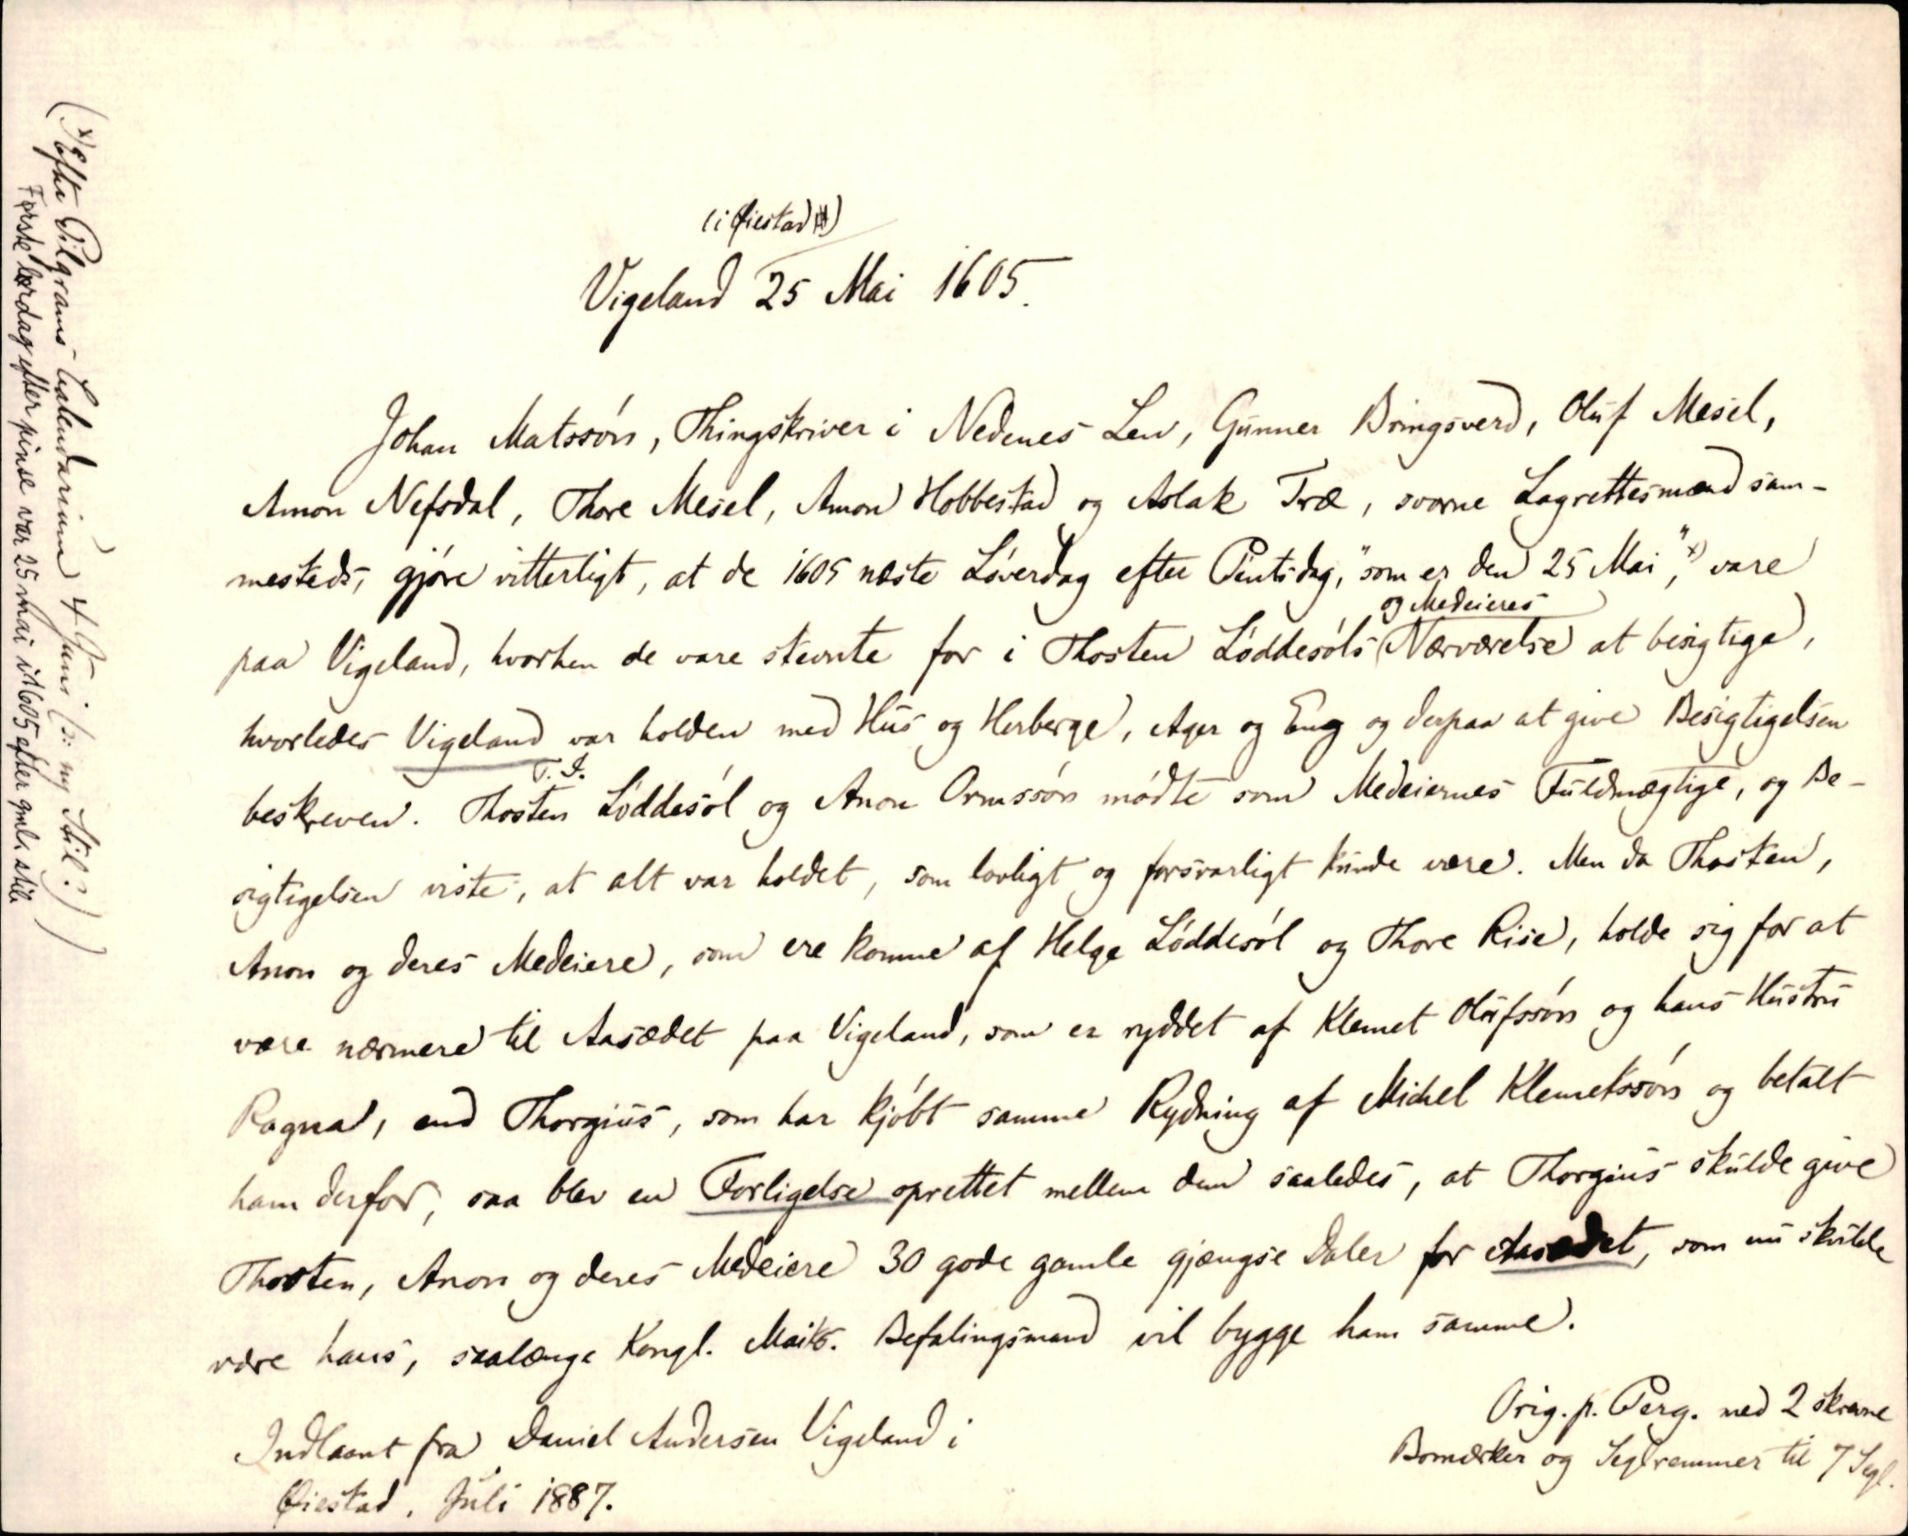 (i Øiestad)
Vigeland 25 Mai 1605.
Johan Matssøn, Thingskriver i Nedenes Len, Gunner Bringsverd, Oluf Mesel,
Amon Nefsdal, Thore Mesel, Amon Hobbestad og Aslak Træ, svorne Lagrettesmænd sam-
mesteds, gjøre vitterligt, at de 1605 næste Løverdag efter Pintsdag, "som er den 25 Mai",x) vare
og Medeieres
paa Vigeland, hvorhen de vare stevnte for i Thosten Løddesøls Nærværelse at besigtige,
hvorledes Vigeland var holden med Hus og Herberge, Ager og Eng og derpaa at give Besigtigelsen
T. I.
beskreven. Thosten Løddesøl og Anon Ormssøn mødte som Medeiernes Fuldmægtige, og Be-
sigtigelsen viste, at alt var holdet, som lovligt og forsvarligt kunde være. Men da Thosten,
Anon og deres Medeiere, som ere komne af Helge Løddesøl og Thore Rise, holde sig for at
være nærmere til Aasædet paa Vigeland, som er ryddet af Klemet Olufssøn og hans Hustru
Ragna, end Thorgius, som har kjøbt samme Rydning af Michel Klemetssøn og betalt
ham derfor, saa blev en Forligelse oprettet mellem dem saaledes, at Thorgius skulde give
Thosten, Anon og deres Medeiere 30 gode gamle gjængse Daler for Aasædet, som nu skulde
være hans, saalænge Kongl. Maits. Befalingsmand vil bygge ham samme.
Orig. p. Perg. med 2 skrevne
Bomærker og Seglremmer til 7 Segl.
Indlaant fra Daniel Andersen Vigeland i
Øiestad, Juli 1887.
(x) Efter Pilgrams Calendarium 4 Juni (ɔ: ny Stil?)
Første lørdag efter pinse var 25 mai i 1605 efter gml. stil